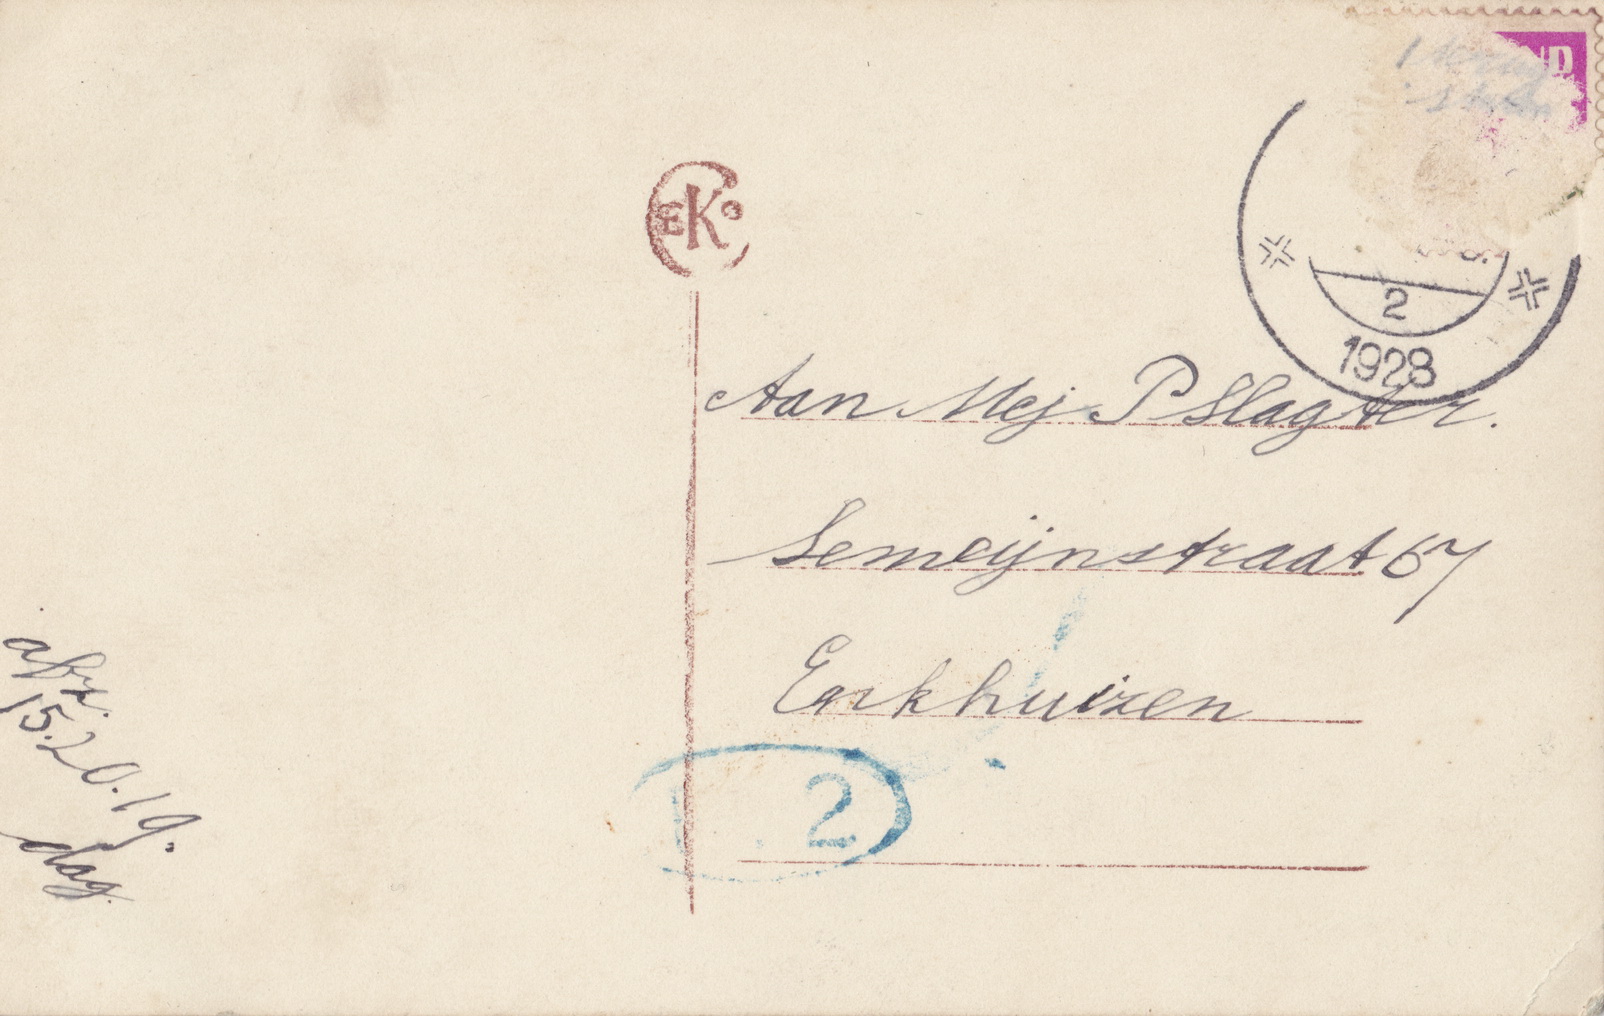 ND
EKo
2
1928
Aan Mej P Slagter.
Semeijnstraat 67
Enkhuizen
2
15.20.19.
dag